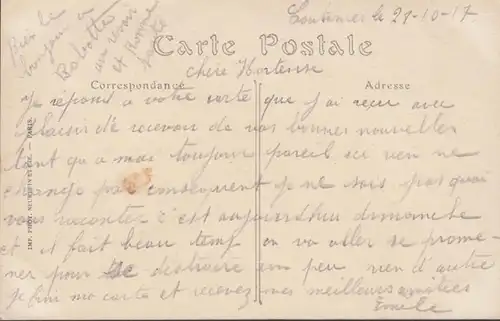 Coutances le 21-10-17
Bien le
bonjour a
Rabotte
au revoir
et Bonne
Santé
Carte Postale
Correspondance
Adresse
chère Hortense
Je répond a votre carte que j'ai reçu avec
plaisir de recevoir de vos bonnes nouvelles
tant qu a moi toujours pareil ici rien ne
change par consequent je ne sais pas quoi
vous raconter c'est aujourd'hui dimanche
et il fait beau temp on va aller se prome-
ner pour se distraire un peu rien d'autre
Je fini ma carte et recevez mes meilleurs amitiées
Emile
IMP. PHOT. NEURDEIN ET CIE. — PARIS